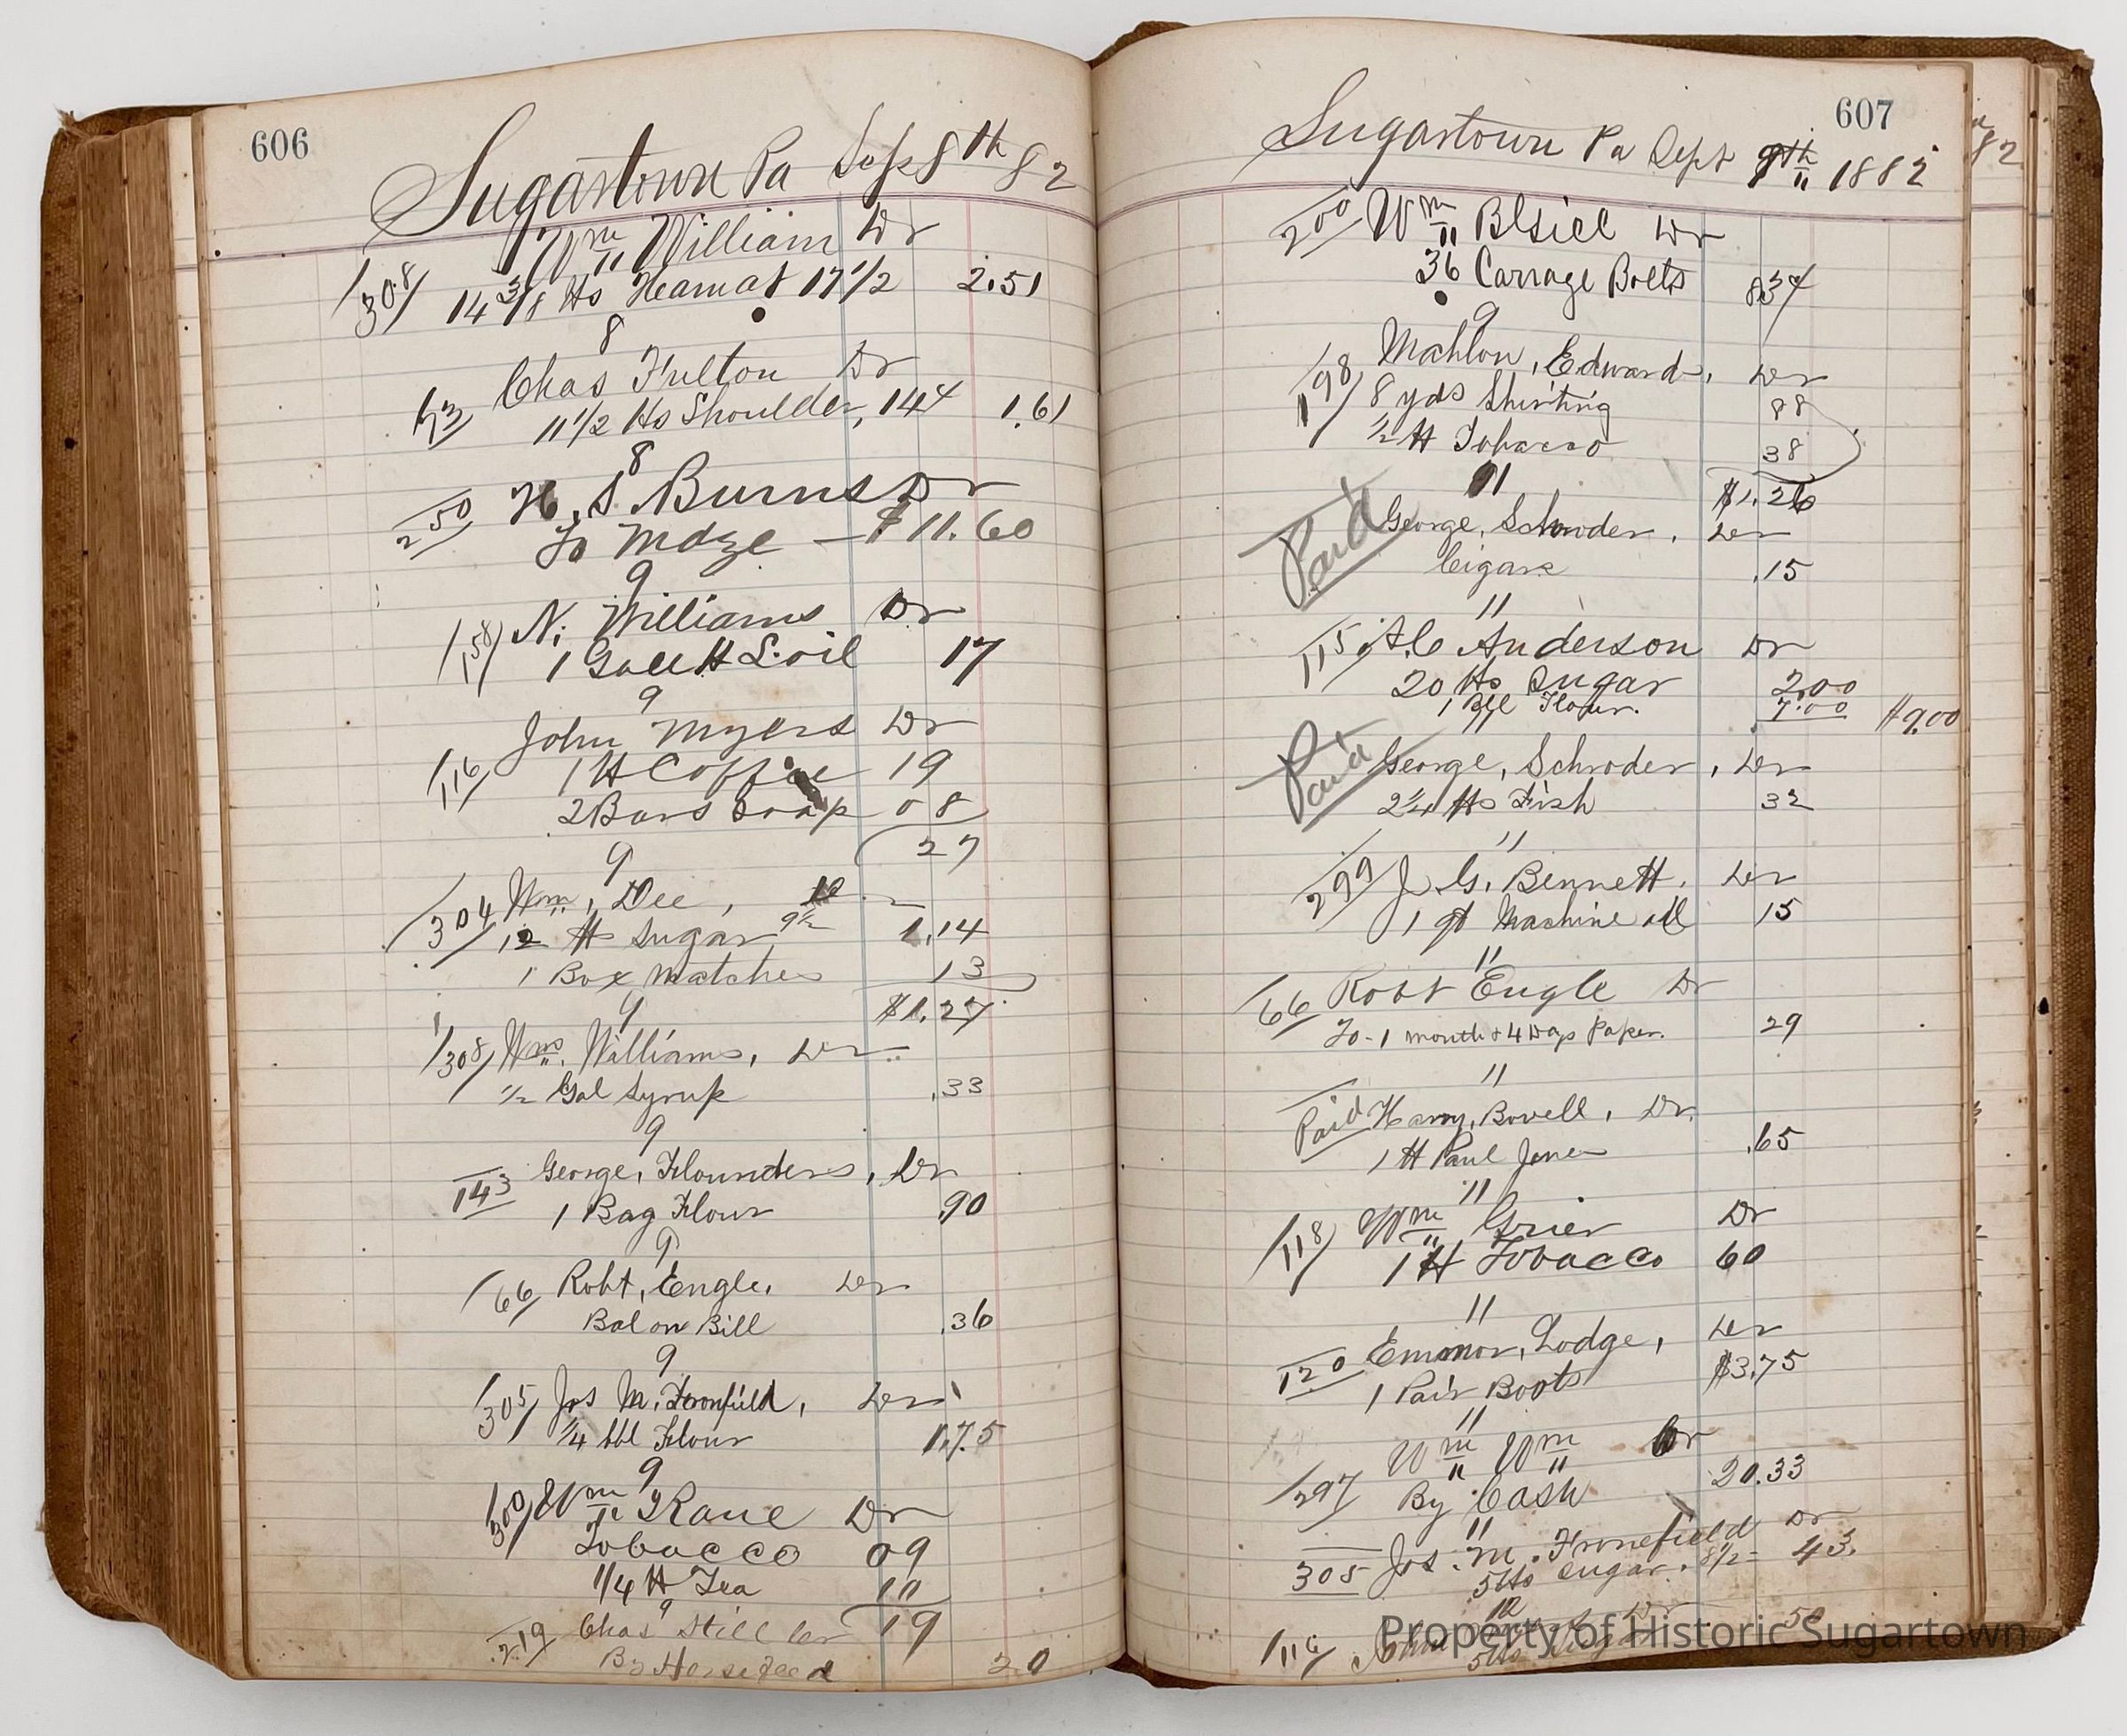 606
Sugartown Pa Sept 8th 82
Wm William Dr
308 14 3/8 lbs Ham at 17 1/2 2.51
8
Chas Fulton Dr
11 1/2 lbs Shoulder, 14 1.61
8
250 H. S. Burns Dr
To Mdze — $11.60
9
158 N. Williams Dr
1 Gall H L. oil 17
9
John Myers Dr
116 1 lb Coffee 19
2 Bars Soap 08
27
9
304 Wm, Dee,
12 lb Sugar 9 1/2 1.14
1 Box Matches 13
$1.27
9
308 Wm. Williams, Dr
1/2 Gal Syrup .33
9
143 George, Flounders, Dr
1 Bag Flour .90
9
66 Robt, Engle, Dr
Bal on Bill .36
9
305 Jos M. Fronfield, Dr
1/4 bbl Flour 1.75
9
300 Wm Kane Dr
Tobacco 09
1/4 lb Tea 10
19
9
219 Chas Still Cr
By Horsefeed 20
607
Sugartown Pa Sept 9th 1882
200 Wm Dr
36 Carrage Bolts
9
198 Mahlon, Edward, Dr
8 yds Shirting 88
1/2 lb Tobacco 38
$1.26
11
Paid George, Schroder, Dr
Cigars .15
11
115 Anderson Dr
20 lbs Sugar 2.00
1 Bbl Flour. 7.00 $9.00
Paid George, Schroder, Dr
2 1/4 lbs Fish 32
11
299 J. G. Bennett. Dr
1 qt Machine oil 15
11
66 Robt Engle Dr
To - 1 month & 4 Days Paper. 29
11
Paid Harry, Bovell, Dr.
1 lb Paul Jones .65
11
118 Wm Grier Dr
1 lb Tobacco 60
11
120 Emmor, Lodge, Dr
1 Pair Boots $3.75
11
Wm Wm
297 By Cash 20.33
11
305 Jos. M. Fronefield Dr
5 lbs Sugar. 8 1/2 43.
12
116 John Dr
5 lbs Sugar 50
Property of Historic Sugartown
82